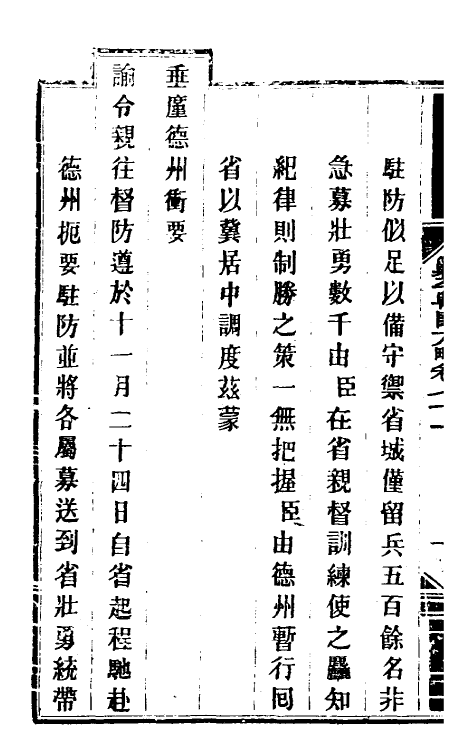 駐防似足以備守禦省城僅留兵五百餘名非
急募壯勇數千由臣在省親督訓練使之麤知
紀律則制勝之策一無把握臣由德州暫行回
省以冀居中調度茲蒙
垂廑德州衝要
諭令親往督防遵於十一月二十四日自省起程馳赴
德州扼要駐防並將各屬募送到省壯勇統帶